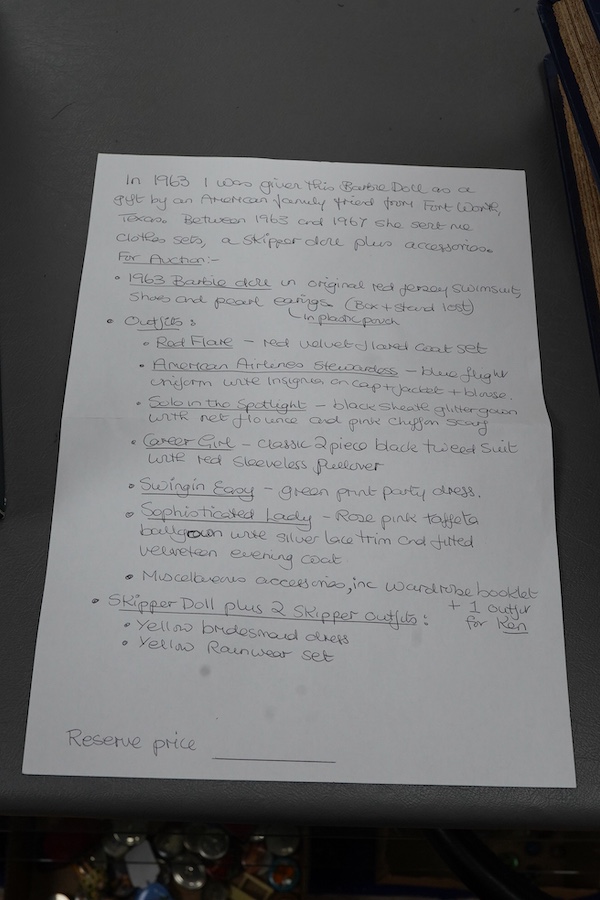 In 1963 I was given this Barbie Doll as a
gift by an American family friend from Fort Worth,
Texas. Between 1963 and 1967 she sent me
clothes sets, a Skipper doll plus accessories.
For Auction:-
• 1963 Barbie doll in original red jersey swimsuit,
shoes and pearl earings. (Box + stand lost)
in plastic pouch
• Outfits:
• Red Flare - red velvet flared coat set
• American Airlines Stewardess - blue flight
uniform with insignia on cap + jacket + blouse.
• Solo in the Spotlight - black sheath glitter gown
with net flounce and pink chiffon scarf
• Career Girl - classic 2 piece black tweed suit
with red sleeveless pullover
• Swingin Easy - green print party dress.
• Sophisticated Lady - Rose pink taffeta
ballgown with silver lace trim and fitted
velveteen evening coat
• Miscellaneous accessories, inc wardrobe booklet
+ 1 outfit
for Ken
• Skipper Doll plus 2 Skipper Outfits:
• Yellow bridesmaid dress
• Yellow Rainwear set
Reserve price